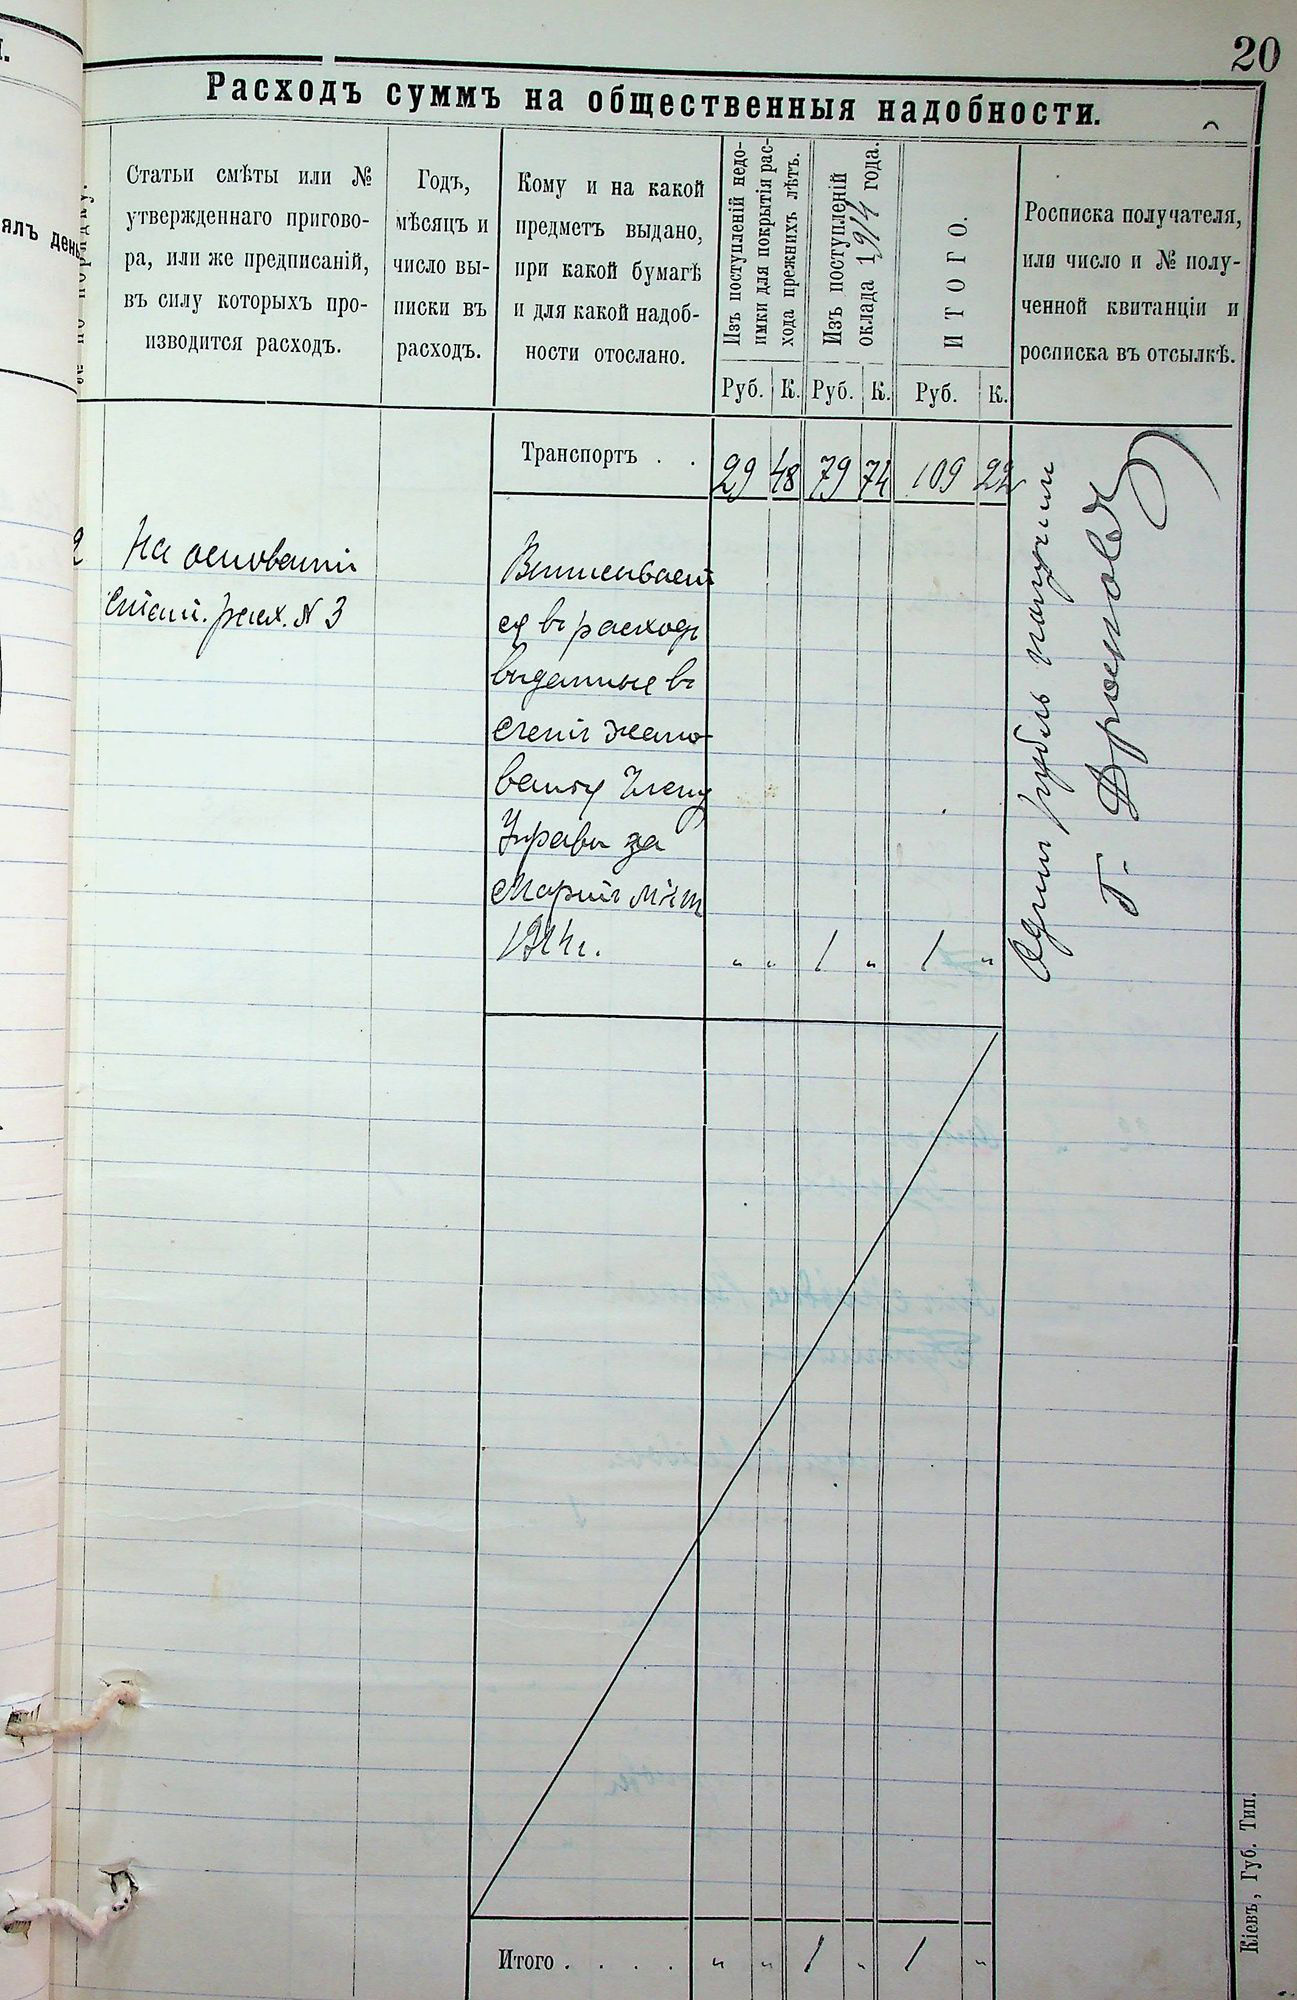 20
Расходъ суммъ на общественныя надобности.
Статьи смѣты или №
утвержденнаго пригово-
ра, или же предписаній,
въ силу которыхъ про-
изводится расходъ.
Годъ,
мѣсяцъ и
число вы-
писки въ
расходъ.
Кому и на какой
предметъ выдано,
при какой бумагѣ
и для какой надоб-
ности отослано.
Изъ поступленій недо-
имки для покрытія рас-
хода прежнихъ лѣтъ.
Изъ поступленій
оклада 1914 года.
ИТОГО.
Росписка получателя,
или число и № полу-
ченной квитанціи и
росписка въ отсылкѣ.
Руб. К. Руб. К. Руб. К.
Транспортъ . . 29 48 79 74 109 22
2 На основаніи
стат. расх. № 3
Выписывает
ся въ расходъ
выданные въ
счетъ жало-
ванья Члену
Управы за
Мартъ м-цъ
1914 г. „ „ 1 „ 1 „
Одинъ рубль получилъ
Итого . . . . „ „ 1 „ 1 „
Кіевъ, Губ. Тип.